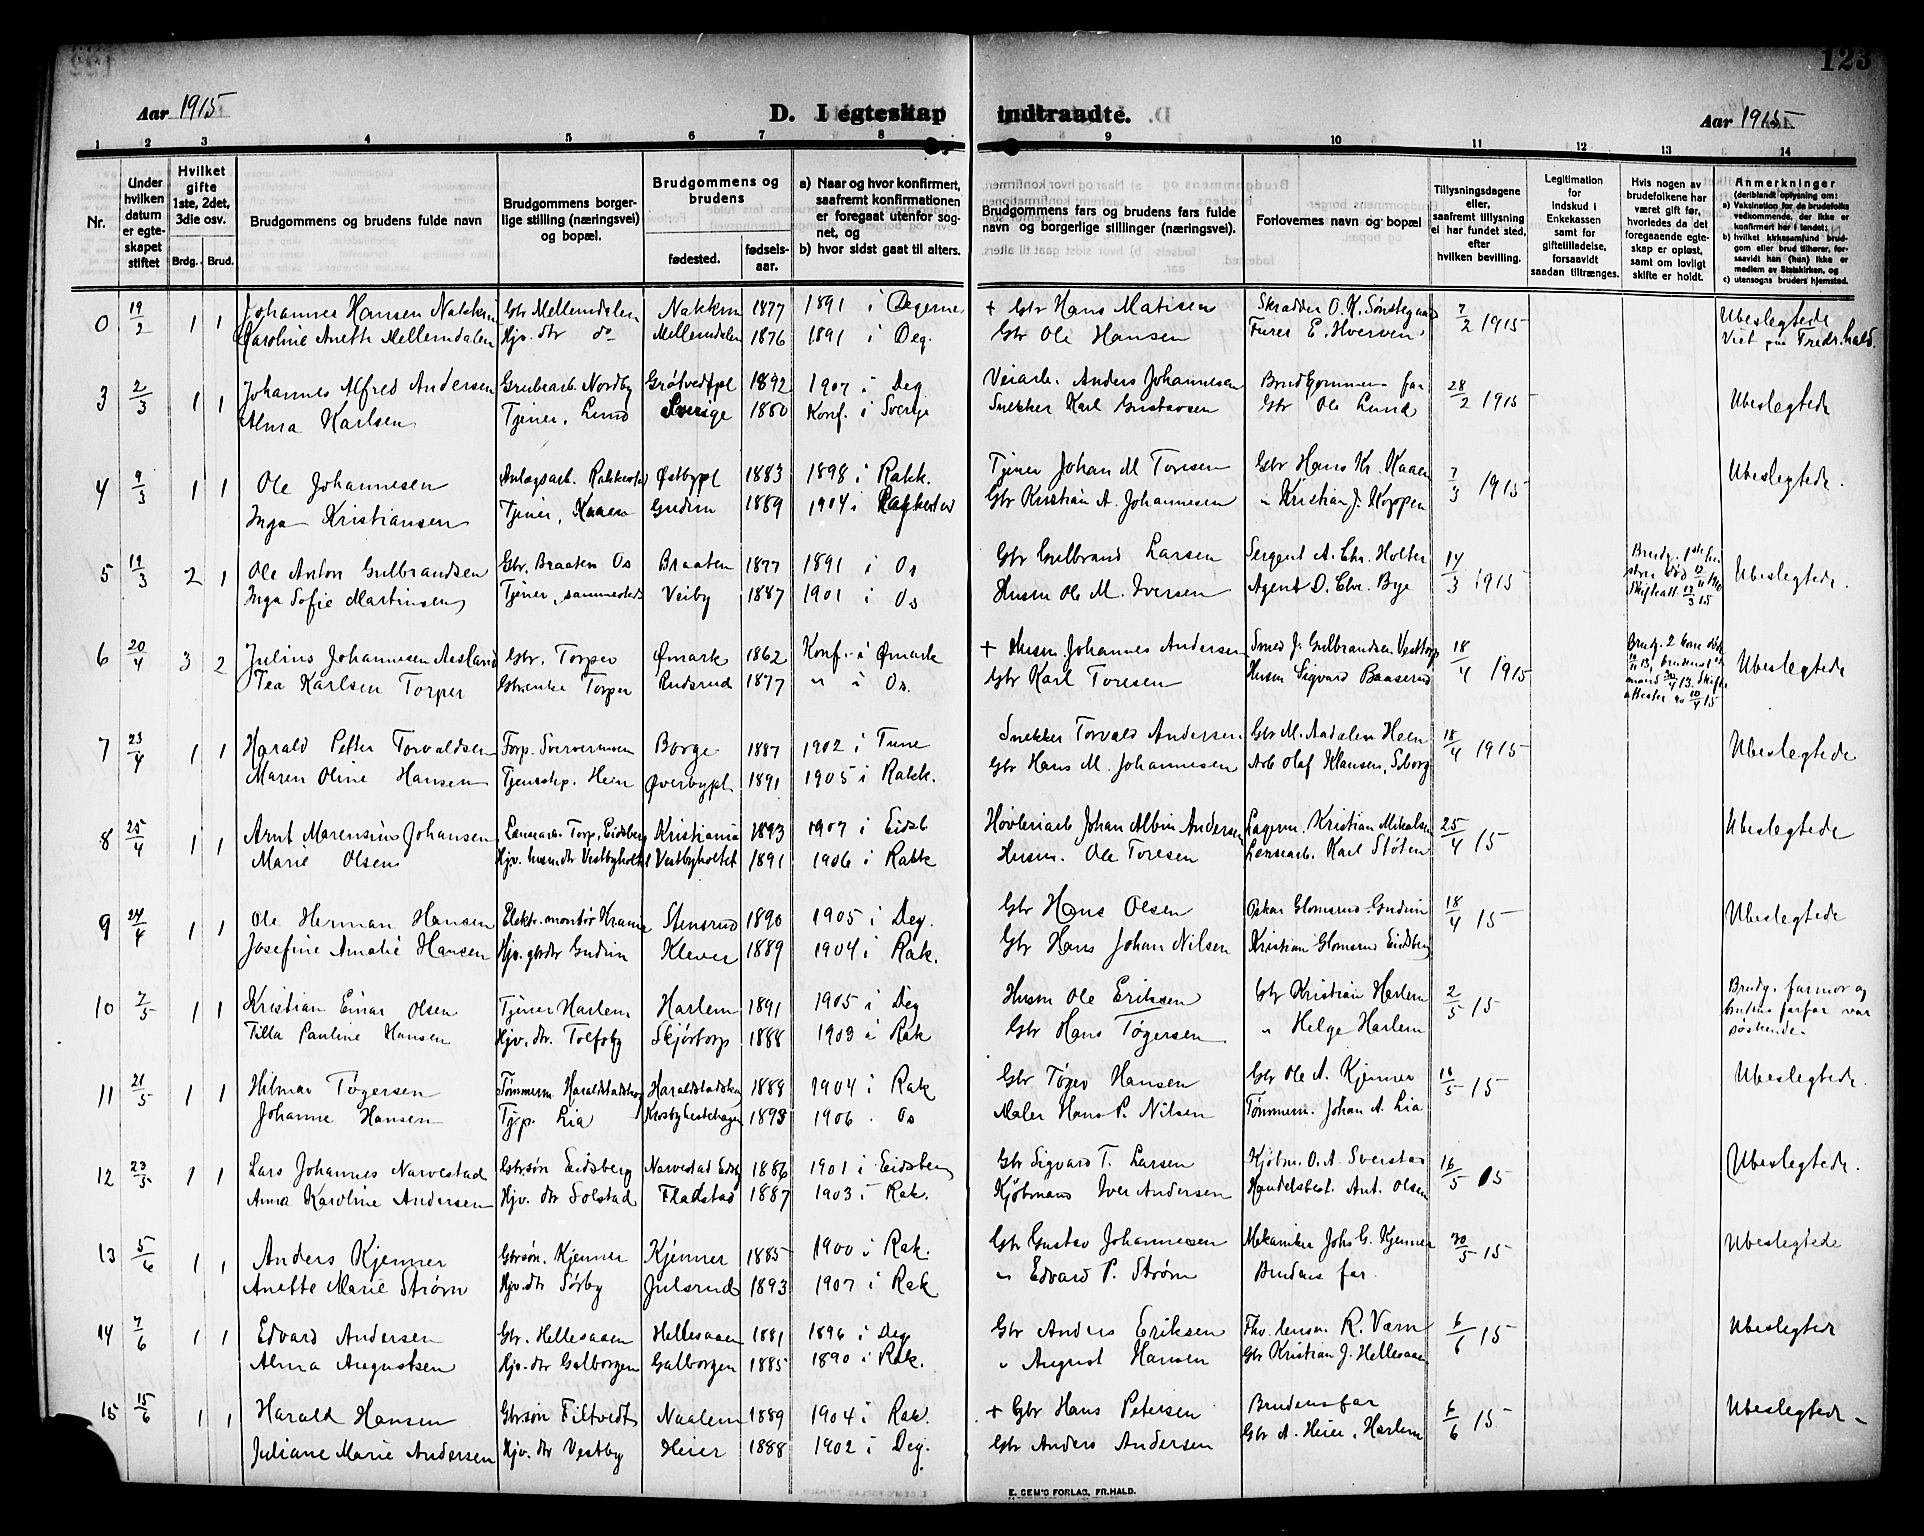 123
Aar 1915
D. I egteskap indtraadte.
Aar 1915
1 2 3 4 5 6 7 8 9 10 11 12 13 14
Nr.
Under hvilken datum er egteskapet stiftet
Hvilket gifte 1ste, 2det, 3die osv.
Brdg. Brud.
Brudgommens og brudens fulde navn
Brudgommens borgerlige stilling (næringsvei) og bopæl.
Brudgommens og brudens
fødested.
fødselsaar.
a) Naar og hvor konfirmert, saafremt konfirmationen er foregaat utenfor sognet, og
b) hvor sidst gaat til alters.
Brudgommens fars og brudens fars fulde navn og borgerlige stillinger (næringsvei).
Forlovernes navn og bopæl
Tillysningsdagene eller, saafremt tillysning ei har fundet sted, efter hvilken bevilling.
Legitimation for Indskud i Enkekassen samt for giftetilladelse, forsaavidt saadan tiltrænges.
Hvis nogen av brudefolkene har været gift før, hvorledes da det foregaaende egteskap er opløst, samt om lovligt skifte er holdt.
Anmerkninger (deriblandt oplysning om:
a) Vaksination for de brudefolks vedkommende, der ikke er konfirmert her i landet:
b) hvilket kirkesamfund brudgom eller brud tilhører, forsaavidt han (hun) ikke er medlem av Statskirken, og
c) utensogns bruders hjemsted.
0 19/2 1 1 Johannes Hansen Nakkim Gbr Mellemdalen Nakkim 1877 1891 i Degernes + Gbr Hans Matisen Skrædder O. K. Sønstegaard 7/2 1915 Ubeslegtede
Karoline Anette Mellemdalen Hjv. dtr do Mellemdalen 1876 1891 i Deg. Gbr Ole Hansen Furer E. Hverven Viet paa Fredr.hald.
3 2/3 1 1 Johannes Alfred Andersen Grubearb. Nordby Grøtvedtpl 1892 1907 i Deg Veiarb. Anders Johannesen Brudgommens far 28/2 1915 Ubeslegtede
Alma Karlsen Tjener, Lund Sverige 1880 Konf. i Sverige Snekker Karl Gustavsen Gbr Ole Lund
4 9/3 1 1 Ole Johannesen Anlægsarb. Rakkestad Østbypl 1883 1898 i Rakk. Tjener Johan M Toresen Gbr Hans Kr. Kaaen 7/3 1915 Ubeslegtede.
Inga Kristiansen Tjener, Kaaen Gudim 1889 1904 i Rakkestad Gbr Kristian A. Johannesen " Kristian J. Koppen
5 19/3 2 1 Ole Anton Gulbrandsen Gbr. Braaten Os Braaten 1877 1891 i Os Gbr Gulbrand Larsen Sergent A. Chr. Holter 14/3 1915 Ubeslegtede.
Inga Sofie Martinsen Tjener, sammesteds Veiby 1887 1901 i Os Husm Ole M. Iversen Agent D. Chr. Bye
6 20/4 3 2 Julius Johannesen Aasland Gbr. Torper Ømark 1862 Konf. i Ømark + Husm. Johannes Andersen Smed J. Gulbrandsen Vesttorp 18/4 1915 Ubeslegtede
Tea Karlsen Torper Gbrenke Torper Rudsrud 1877 " i Os. Gbr Karl Toresen Husm Sigvard Baaserud
7 23/4 1 1 Harald Petter Torvaldsen Forp. Sververumen Borge 1887 1902 i Tune Snekker Torvald Andersen Gbr M. Aadalen Heen 18/4 1915 Ubeslegtede
Maren Oline Hansen Tjenstep. Heen Øverbypl 1891 1905 i Rakk. Gbr Hans M. Johannesen Arb Olaf Klausen, Sborg
8 25/4 1 1 Arnt Marensius Johansen Lensearb. Torp, Eidsberg Kristiania 1893 1907 i Eidsb Høvleriarb Johan Albin Andersen Lagerm. Kristian Mikalsen 25/4 15 Ubeslegtede
Marie Olsen Hjv. husmdtr Vestbyholtet Vestbyholtet 1891 1906 i Rakk Husm. Ole Toresen Lensearb. Karl Støten
9 24/4 1 1 Ole Herman Hansen Elektr. montør Krania Stensrud 1890 1905 i Deg. Gbr Hans Olsen Oskar Glomsrud Gudim 18/4 15 Ubeslegtede
Josefine Amalie Hansen Hjv. gbrdtr Gudim Klever 1889 1904 i Rak. Gbr Hans Johan Nilsen Kristian Glomsrud Eidsberg
10 7/5 1 1 Kristian Einar Olsen Tjener Harlem Harlem 1891 1905 i Deg Husm Ole Eriksen Gbr Kristian Harlem 2/5 15 Brudg. farmor og
Tilla Pauline Hansen Hjv. dtr. Tolfsby Skjørtorp 1888 1903 i Rak Gbr Hans Tøgersen " Helge Harlem brudens farfar var søskende.
11 21/5 1 1 Hilmar Tøgersen Tømmerm. Haraldstadskog Haraldstadskog 1888 1904 i Rak Gbr Tøger Hansen Gbr Ole A. Kjenner 16/5 15 Ubeslegtede.
Johanne Hansen Tjp. Lia 1893 1906 . Os Maler Hans P. Nilsen Tømmerm. Johan A. Lia
12 23/5 1 1 Lars Johannes Narvestad Gbrsøn Eidsberg Narvestad Eidsbg 1886 1901 i Eidsberg Gbr Sigvard T. Larsen Kjøbm. O. A. Sverstad 16/5 15 Ubeslegtede.
Anna Karoline Andersen Hjv. dtr Solstad Fladstad 1887 1903 i Rak. Kjøbmand Iver Andersen Handelsbest. Ant. Olsen
13 5/6 1 1 Anders Kjenner Gbrsøn. Kjenner Kjenner 1885 1900 i Rak. Gbr Gustav Johannesen Mekaniker Johs G. Kjenner 30/5 15 Ubeslegtede
Anette Marie Strøm Hjv. dtr Sørby Julsrud 1893 1907 i Rak " Edvard P. Strøm Brudens far.
14 7/6 1 1 Edvard Andersen Gbr. Hellesaaen Hellesaaen 1881 1896 i Deg Gbr Anders Eriksen R. Værn 6/6 15 Ubeslegtede
Alma Augustsen Hjv. dtr Galborgen Galborgen 1885 1890 i Rak. " August Hansen Gbr Kristian J. Hellesaaen
15 15/6 1 1 Harald Hansen Gbrsøn Filtvedt Naalem 1889 1904 i Rak. + Gbr Hans Petersen Brudens far 6/6 15 Ubeslegtede
Juliane Marie Andersen Hjv. dtr Vestby Heier 1888 1902 i Deg. Gbr Anders Andersen Gbr A. Heier, Harlem
E. GEM'S FORLAG, FR.HALD.